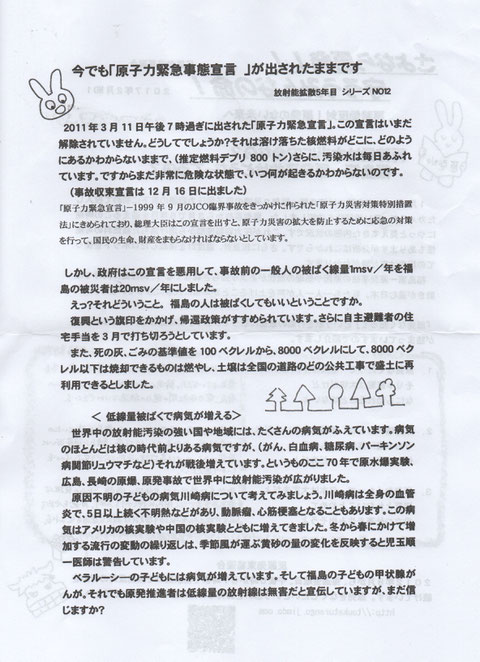 今でも「原子力緊急事態宣言　」が出されたままです
放射能拡散5年目 シリーズ NO12
2011 年 3 月 11 日午後 7 時過ぎに出された「原子力緊急宣言」。この宣言はいまだ
解除されていません。どうしてでしょうか？それは溶け落ちた核燃料がどこに、どのよう
にあるかわからないまで、（推定燃料デブリ 800 トン）さらに、汚染水は毎日あふれ
ています。ですからまだまだ非常に危険な状態で、いつ何が起きるかわからないのです。
（事故収束宣言は 12 月 16 日に出ました）
「原子力緊急宣言」―1999 年 9 月のJCO臨界事故をきっかけに作られた「原子力災害対策特別措置
法」にきめられており、総理大臣はこの宣言を出すと、原子力災害の拡大を防止するために応急の対策
を行って、国民の生命、財産をまもらなければならないとしています。
しかし、政府はこの宣言を悪用して、事故前の一般人の被ばく線量1msv／年を福
島の被災者は20msv／年にしました。
えっ？それどういうこと。 福島の人は被ばくしてもいいということですか。
復興という旗印をかかげ、帰還政策がすすめられています。さらに自主避難者の住
宅手当を 3 月で打ち切ろうとしています。
また、死の灰、ごみの基準値を 100 ベクレルから、8000 ベクレルにして、8000 ベク
レル以下は焼却できるものは燃やし、土壌は全国の道路のどの公共工事で盛土に再
利用できるとしました。
＜ 低線量被ばくで病気が増える＞
世界中の放射能汚染の強い国や地域には、たくさんの病気がふえています。病気
のほとんどは核の時代前よりある病気ですが、（がん、白血病、糖尿病、パーキンソン
病関節リュウマチなど）それが戦後増えています。というものここ 70 年で原水爆実験、
広島、長崎の原爆、原発事故で世界中に放射能汚染が広がりました。
原因不明の子どもの病気川崎病について考えてみましょう。川崎病は全身の血管
炎で、5日以上続く不明熱などがあり、動脈瘤、心筋梗塞となることもあります。この病
気はアメリカの核実験や中国の核実験とともに増えてきました。冬から春にかけて増
加する流行の変動の繰り返しは、季節風が運ぶ黄砂の量の変化を反映すると児玉順
一医師は警告しています。
ベラルーシーの子どもには病気が増えています。そして福島の子どもの甲状腺が
んが。それでも原発推進者は低線量の放射線は無害だと宣伝していますが、まだ信
じますか？